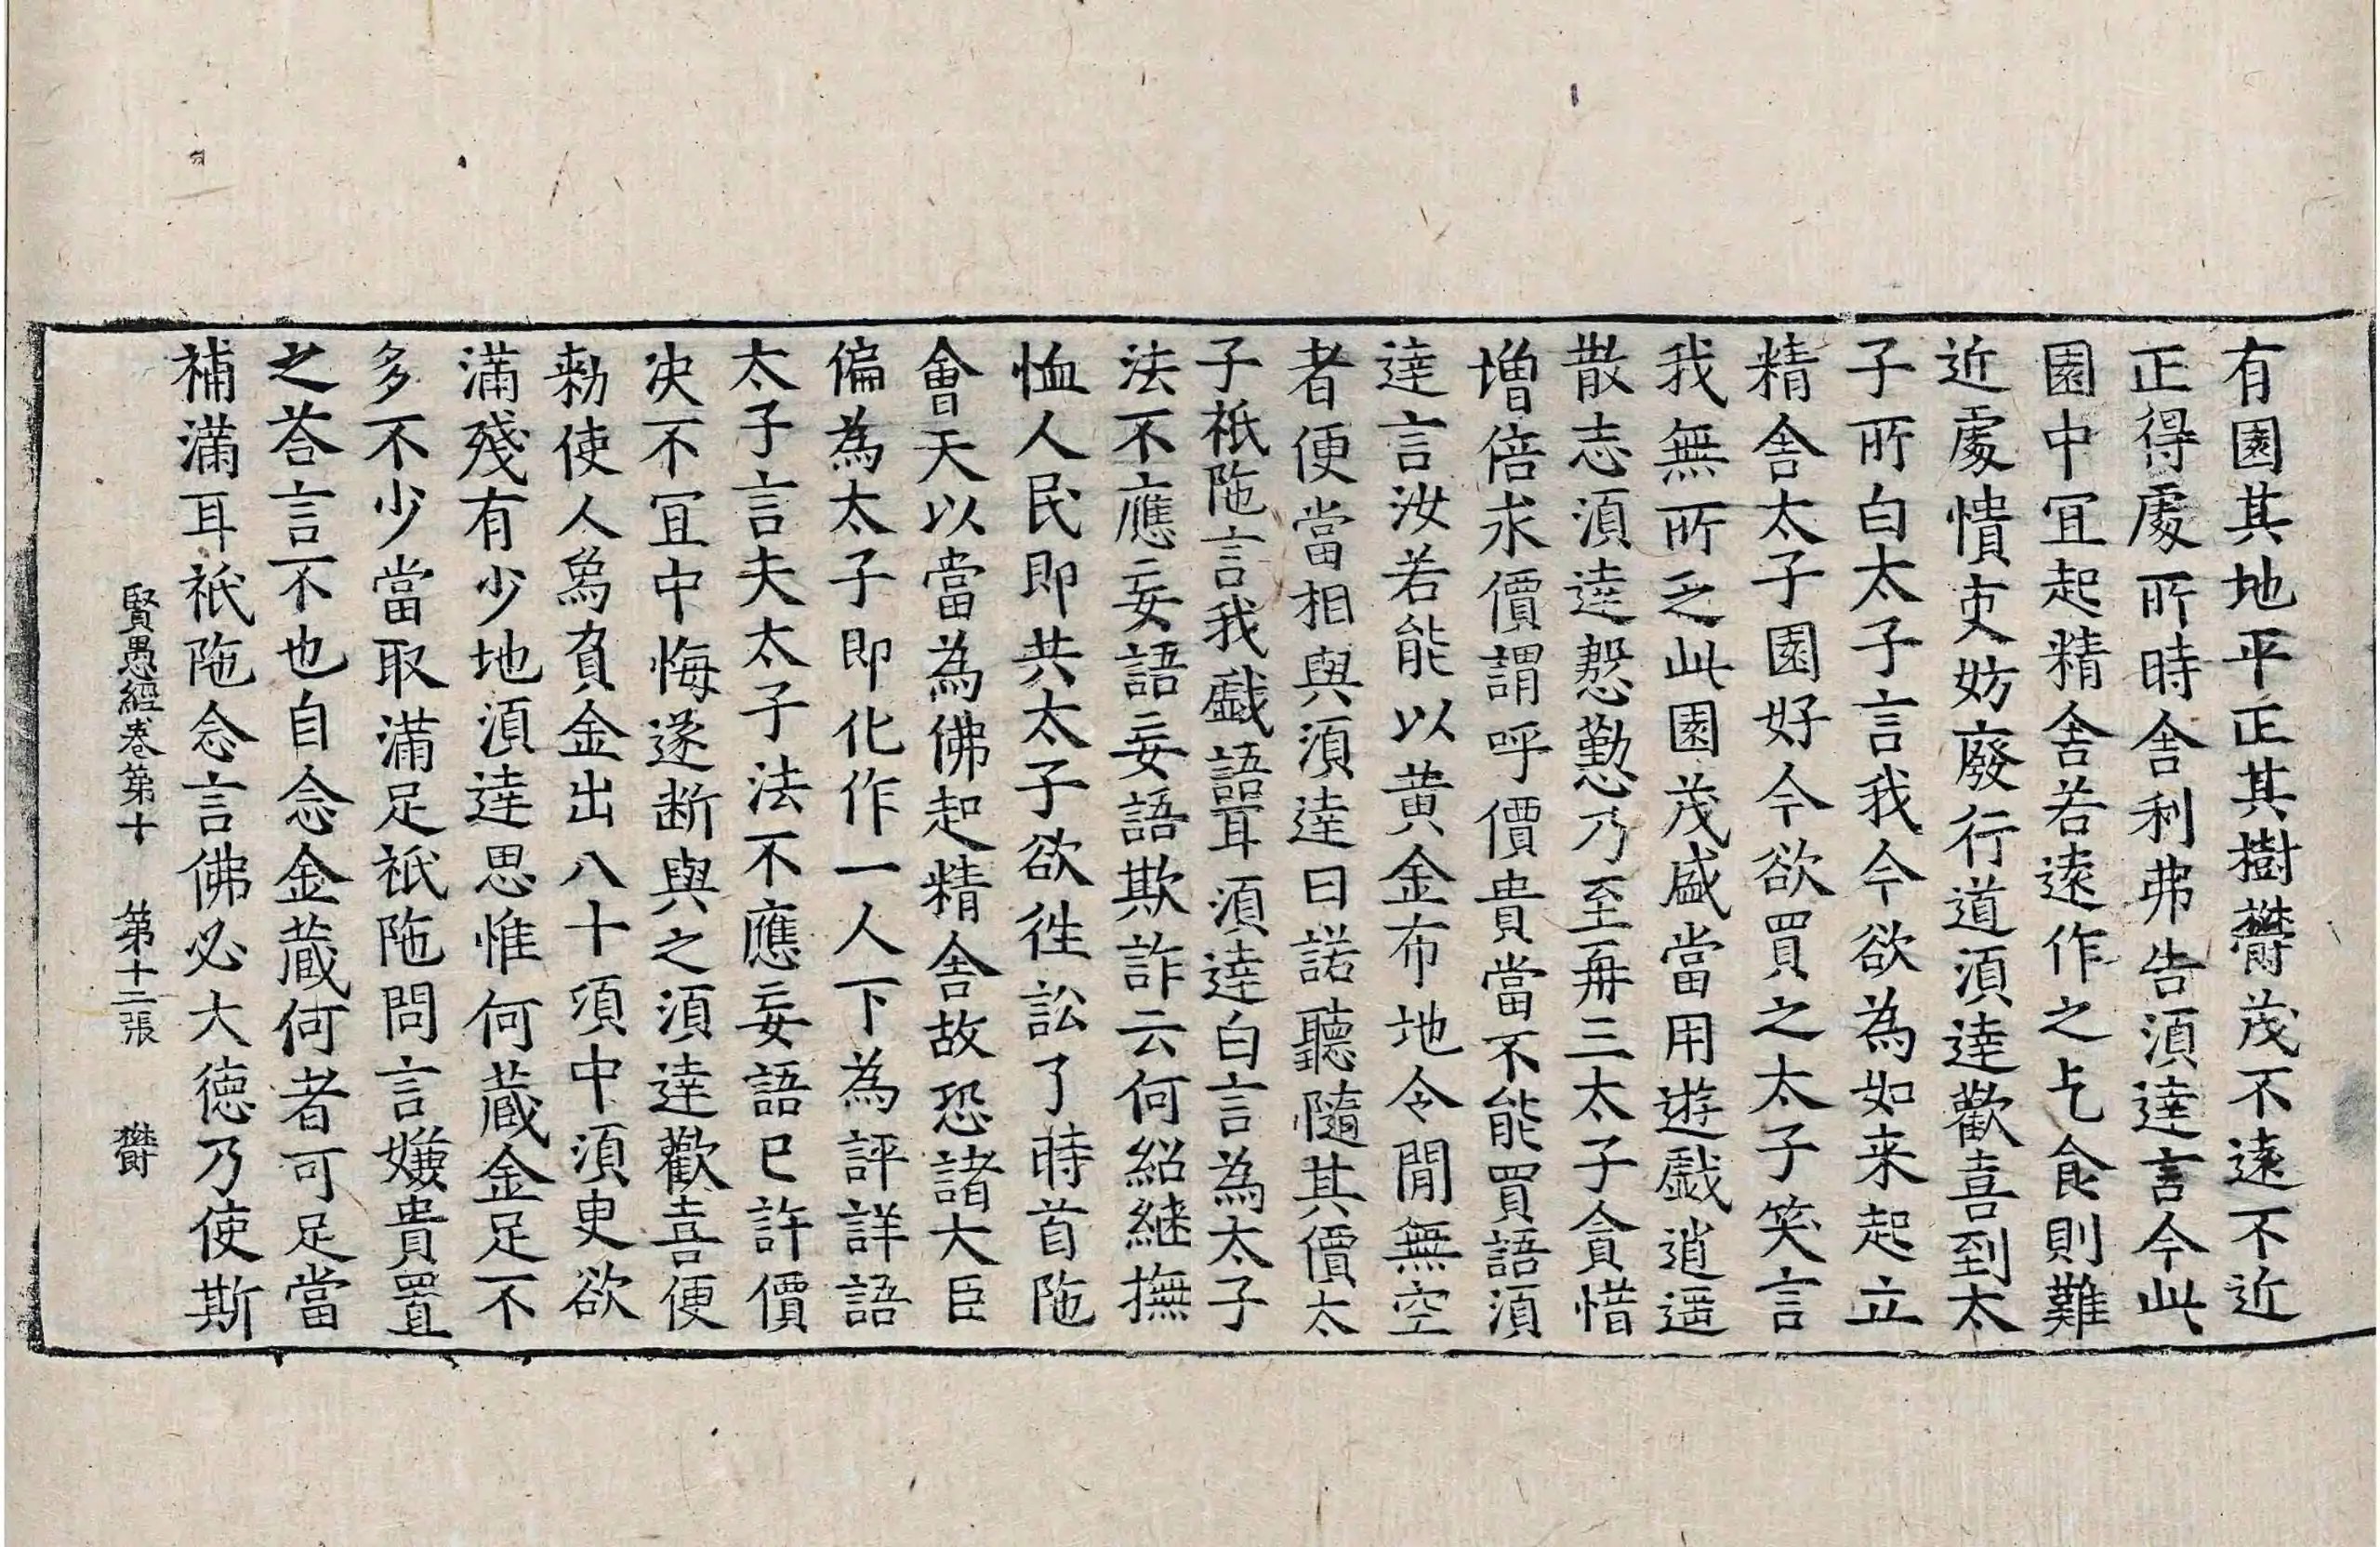 有園其地平正其樹欝茂不遠不近
正得處所時舍利弗告湏逹言今此
園中冝起精舍若逺作之乞食則難
近處憒吏妨廢行道湏逹歡喜到太
子所白太子言我今欲為如来起立
精舍太子園好今欲買之太子笑言
我無所乏此園茂盛當用遊戲逍遥
散志湏逹慇懃乃至再三太子貪惜
增倍求價謂呼價貴當不能買語湏
逹言汝若能以黄金布地令閒無空
者便當相與湏逹曰諾聽隨其價太
子祇陁言我戲語耳湏逹白言為太子
法不應妄語妄語欺詐云何紹継撫
恤人民即共太子欲徃訟了時首陁
會天以當為佛起精舍故恐諸大臣
偏為太子即化作一人下為評詳語
太子言夫太子法不應妄語已許價
决不冝中悔遂断與之湏逹歡喜便
勑使人象負金出八十湏中湏㬰欲
滿殘有少地湏逹思惟何藏金足不
多不少當取滿足祇陁問言嫌貴置
之荅言不也自念金藏何者可足當
補滿耳祇陁念言佛必大德乃使斯
賢愚經卷第十 第十二張 欝